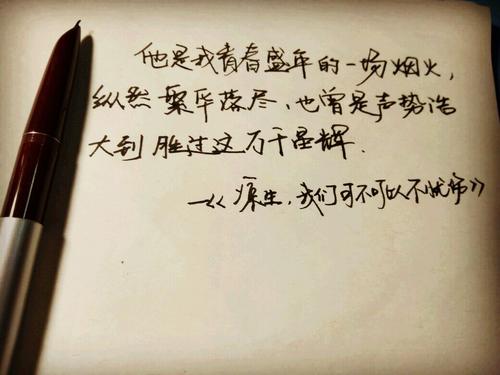 他是我青春盛年的一场烟火，
纵然繁华落尽，也曾是声势浩
大到胜过这万千星辉.
—《凉生，我们可不可以不忧伤》